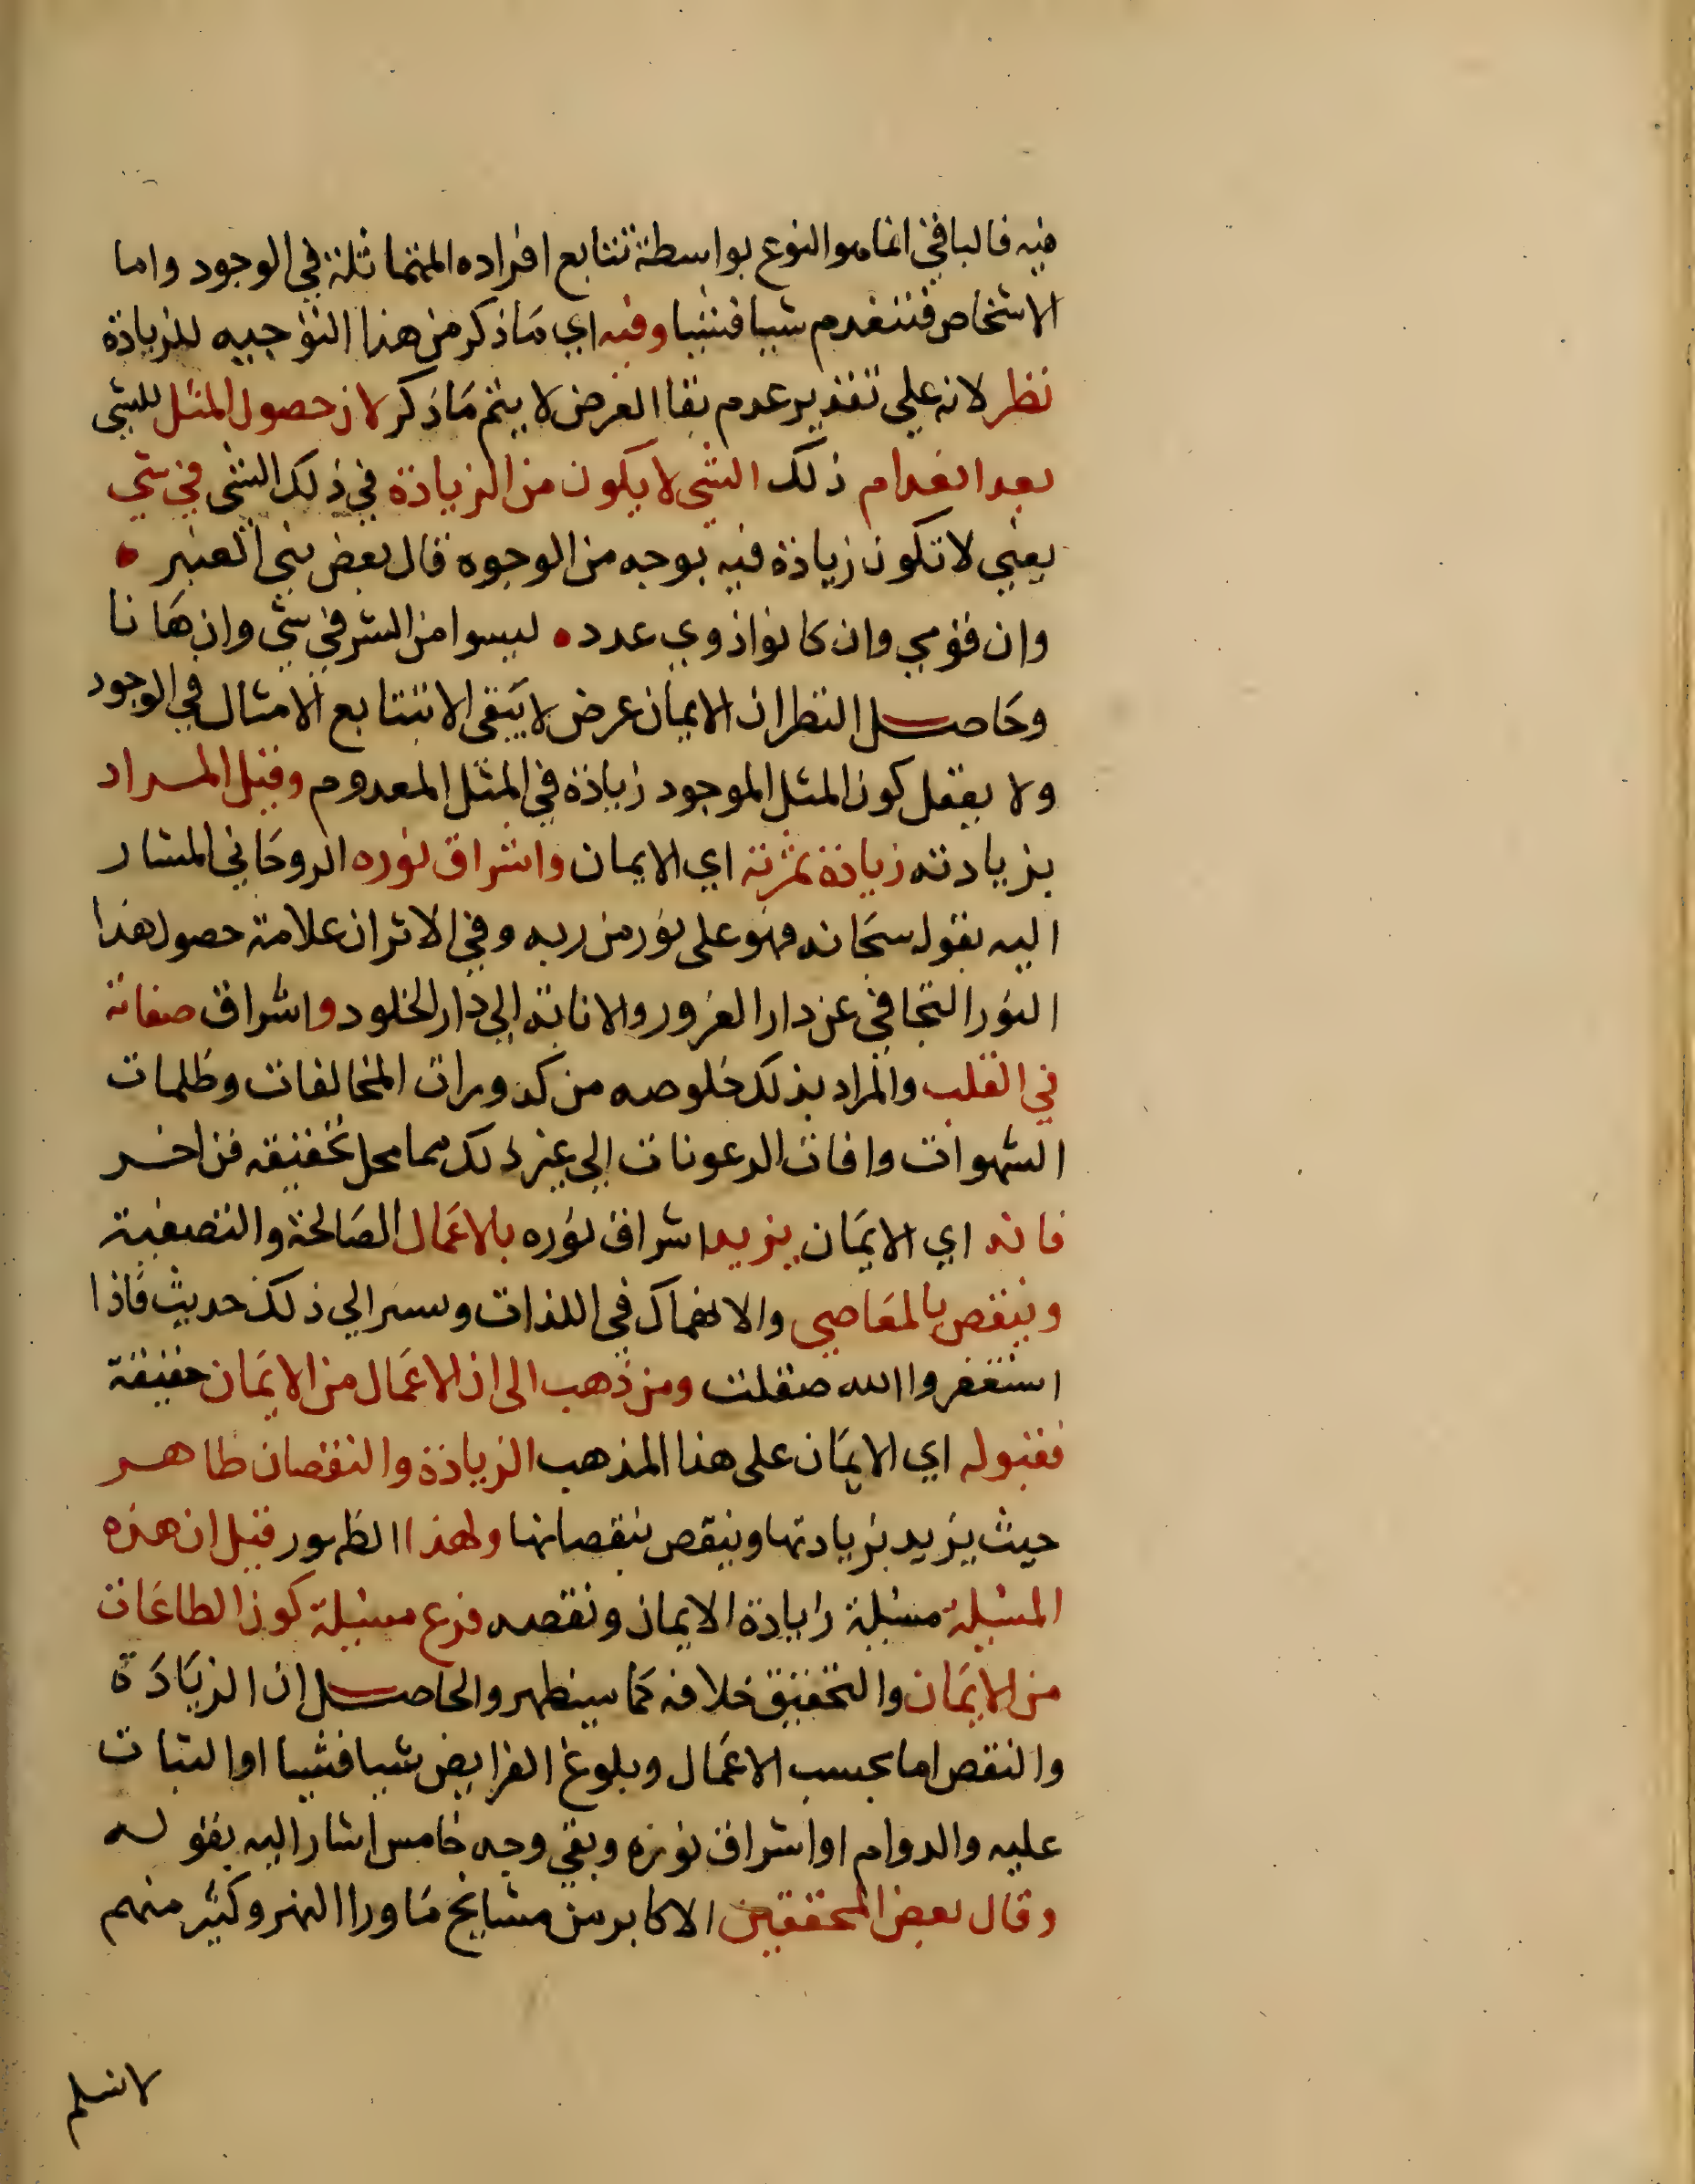 فيه فالباقي انما هو النوع بواسطة تتابع افراده المتماثلة في الوجود واما
الاشخاص فتنعدم شيا فشيا وفيه اي ما ذكر من هذا التوجيه للزيادة
نظر لانه علي تقدير عدم بقا العرض لا يتم ما ذكر لان حصول المثل للشي
بعد انعدام ذلك الشي لا يكون من الزيادة في ذلك الشي في شي
يعني لا تكون زيادة فيه بوجه من الوجوه قال بعض بني العنبر
وان قومي وان كانوا ذوي عدد ليسوا من الشر في شي وان هانا
وحاصل النظر ان الايمان عرض لا يبقى الا بتتابع الامثال في الوجود
ولا يعقل كون المثل الموجود زيادة في المثل المعدوم وقيل المراد
بزيادته زيادة ثمرته اي الايمان واشراق نوره الروحاني المشار
اليه بقوله سبحانه فهو على نور من ربه وفي الاثر ان علامة حصول هذا
النور التجافي عن دار الغرور والانابة الي دار الخلود واشراق صفاته
في القلب والمراد بذلك خلوصه من كدورات المخالفات وظلمات
الشهوات وافات الرعونات الي غير ذلك مما محل تحقيقه فن اخر
فانه اي الايمان يزيد اشراق نوره بالاعمال الصالحة والتصفية
وينقص بالمعاصي والانهماك في اللذات وسر الي ذلك حديث فاذا
استغفروا الله صقلت ومن ذهب الى ان الاعمال من الايمان حقيقة
فقبوله اي الايمان على هذا المذهب الزيادة والنقصان ظاهر
حيث يزيد بزيادتها وينقص بنقصانها ولهذا الظهور قيل ان هذه
المسئلة مسئلة زايادة الايمان ونقصه فرع مسئلة كون الطاعات
من الايمان والتحقيق خلافه كما سيظهر والحاصل ان الزيادة
والنقص اما بحسب الاعمال وبلوغ الفرايض شيا فشيا او الثبات
عليه والدوام او اشراق نوره وبقي وجه خامس اشار اليه بقوله
وقال بعض المحققين الاكابر من مشايخ ما ورا النهر وكثير منهم
لا نسلم